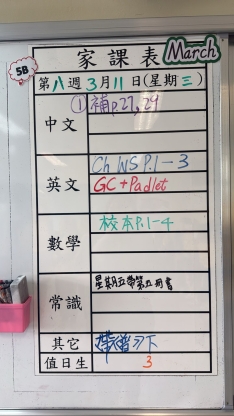 家課表
March
5B
第八週3月11日(星期三)
中文
①補p.27,29
英文
Ch WS P.1-3
GC+Padlet
數學
校本P.1-4
常識
星期五帶第五冊書
其它
帶
習下
值日生
3